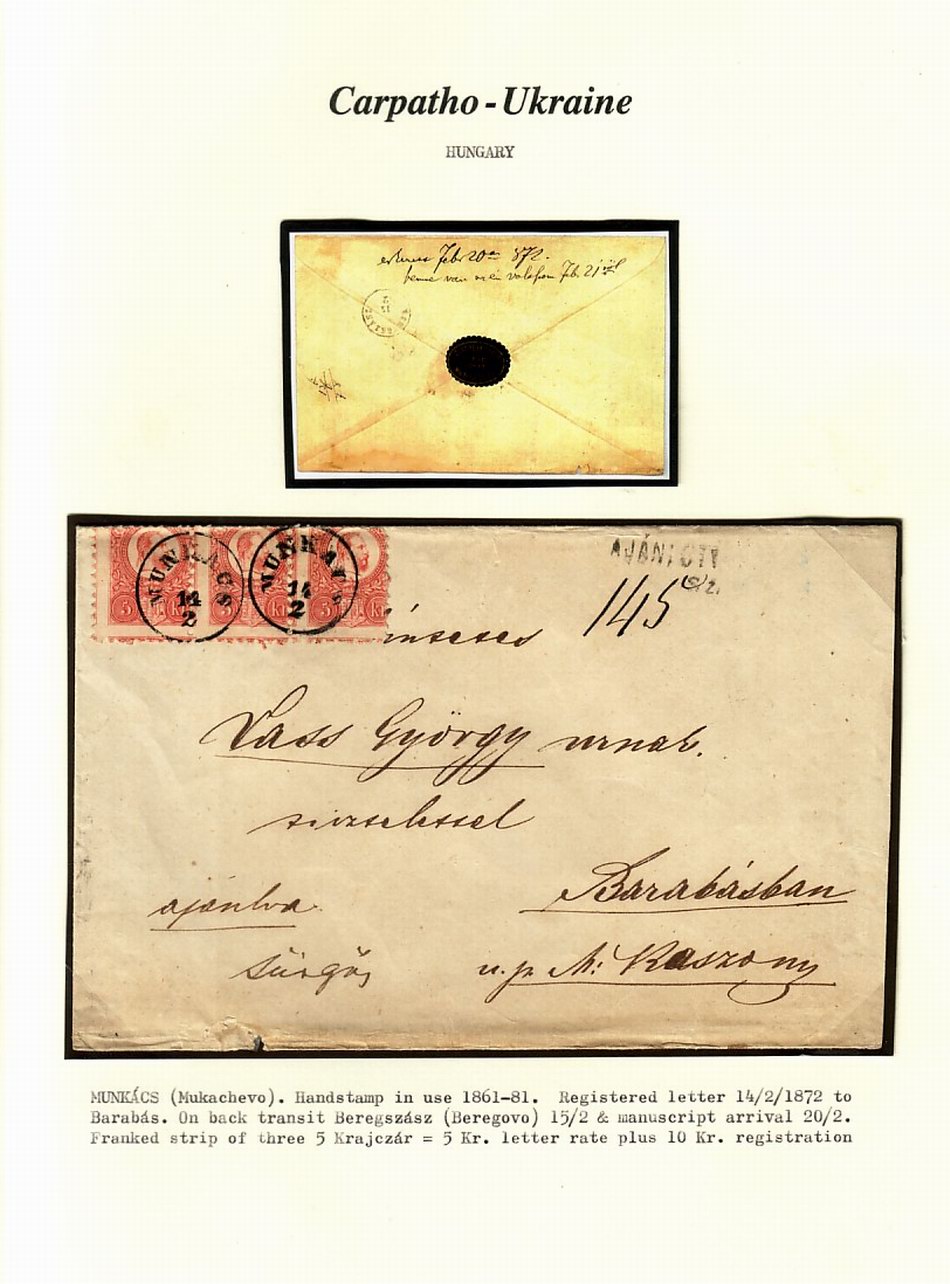 Carpatho-Ukraine
HUNGARY
Febr 20án 872.
benne van Feb. 21
MUNKÁCS
14
2
MUNKÁCS
14
2
5 Kr
Kr
5 Kr
AJÁNLOTT
145
Vass György urnak.
ajánlva
Barabásban
Sürgős
u. p. M: Kaszony
MUNKÁCS (Mukachevo). Handstamp in use 1861-81. Registered letter 14/2/1872 to
Barabás. On back transit Beregszász (Beregovo) 15/2 & manuscript arrival 20/2.
Franked strip of three 5 Krajczár = 5 Kr. letter rate plus 10 Kr. registration